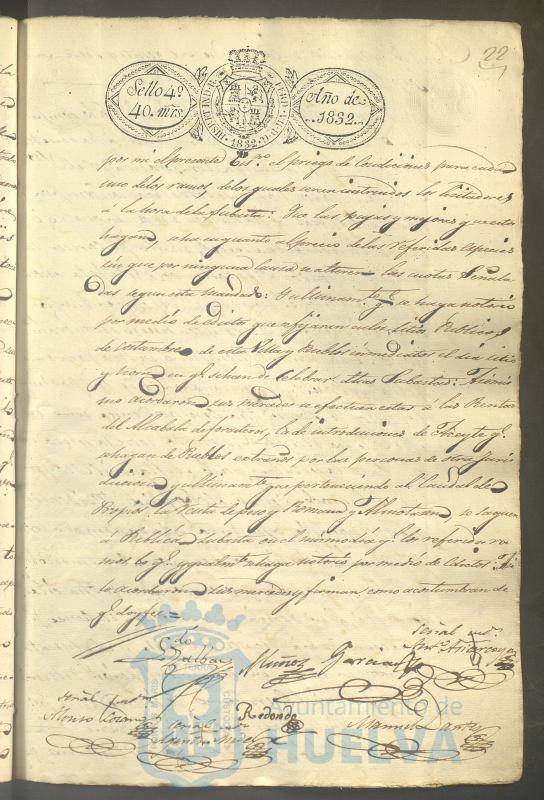 22
Sello 4º
40. mrs
HISP. ET IND. R
1832
Año de
1832.
por mi el presente Essno. el pliego de Condiciones para cada
uno de los ramos, de los quales seran instruidos los licitadores
á la hora de la subasta: Que las pujas y mejoras que estos
hagan, sea en quanto al precio de las referidas especies
sin que por ninguna Causa se alteren las cuotas Señala
das segun esta mandado: Y ultimamte. qe. se haga notorio
por medio de edictos que se fijaran en los Sitios Publicos
de costumbre de esta Villa y Pueblos inmediatos el dia sitio
y hora en qe. se han de Celebrar dhas Subastas: Asimis
mo acordaron sus mercedes se efectuen estas á las Rentas
del Alcabala de foraneos, la de introduciones de Aceyte qe.
se hagan de Pueblos extraños por las personas de otra Juris
diccion y ultimamte. que perteneciendo al Caudal de
Propios la Renta de peso y Romana y Almotacen, se saquen
á Publica subasta en el mismo dia qe. los referidos ra
mos lo qe. ygualmte. se haga notorio por medio de edictos: Asi
lo acordaron sus mercedes y firman como acostumbran de
qe. doy fee =
Muñoz
Garcia
señal del
señal del
Alonso
Redondo
señal del
Manuel
Ayuntamiento de
HUELVA